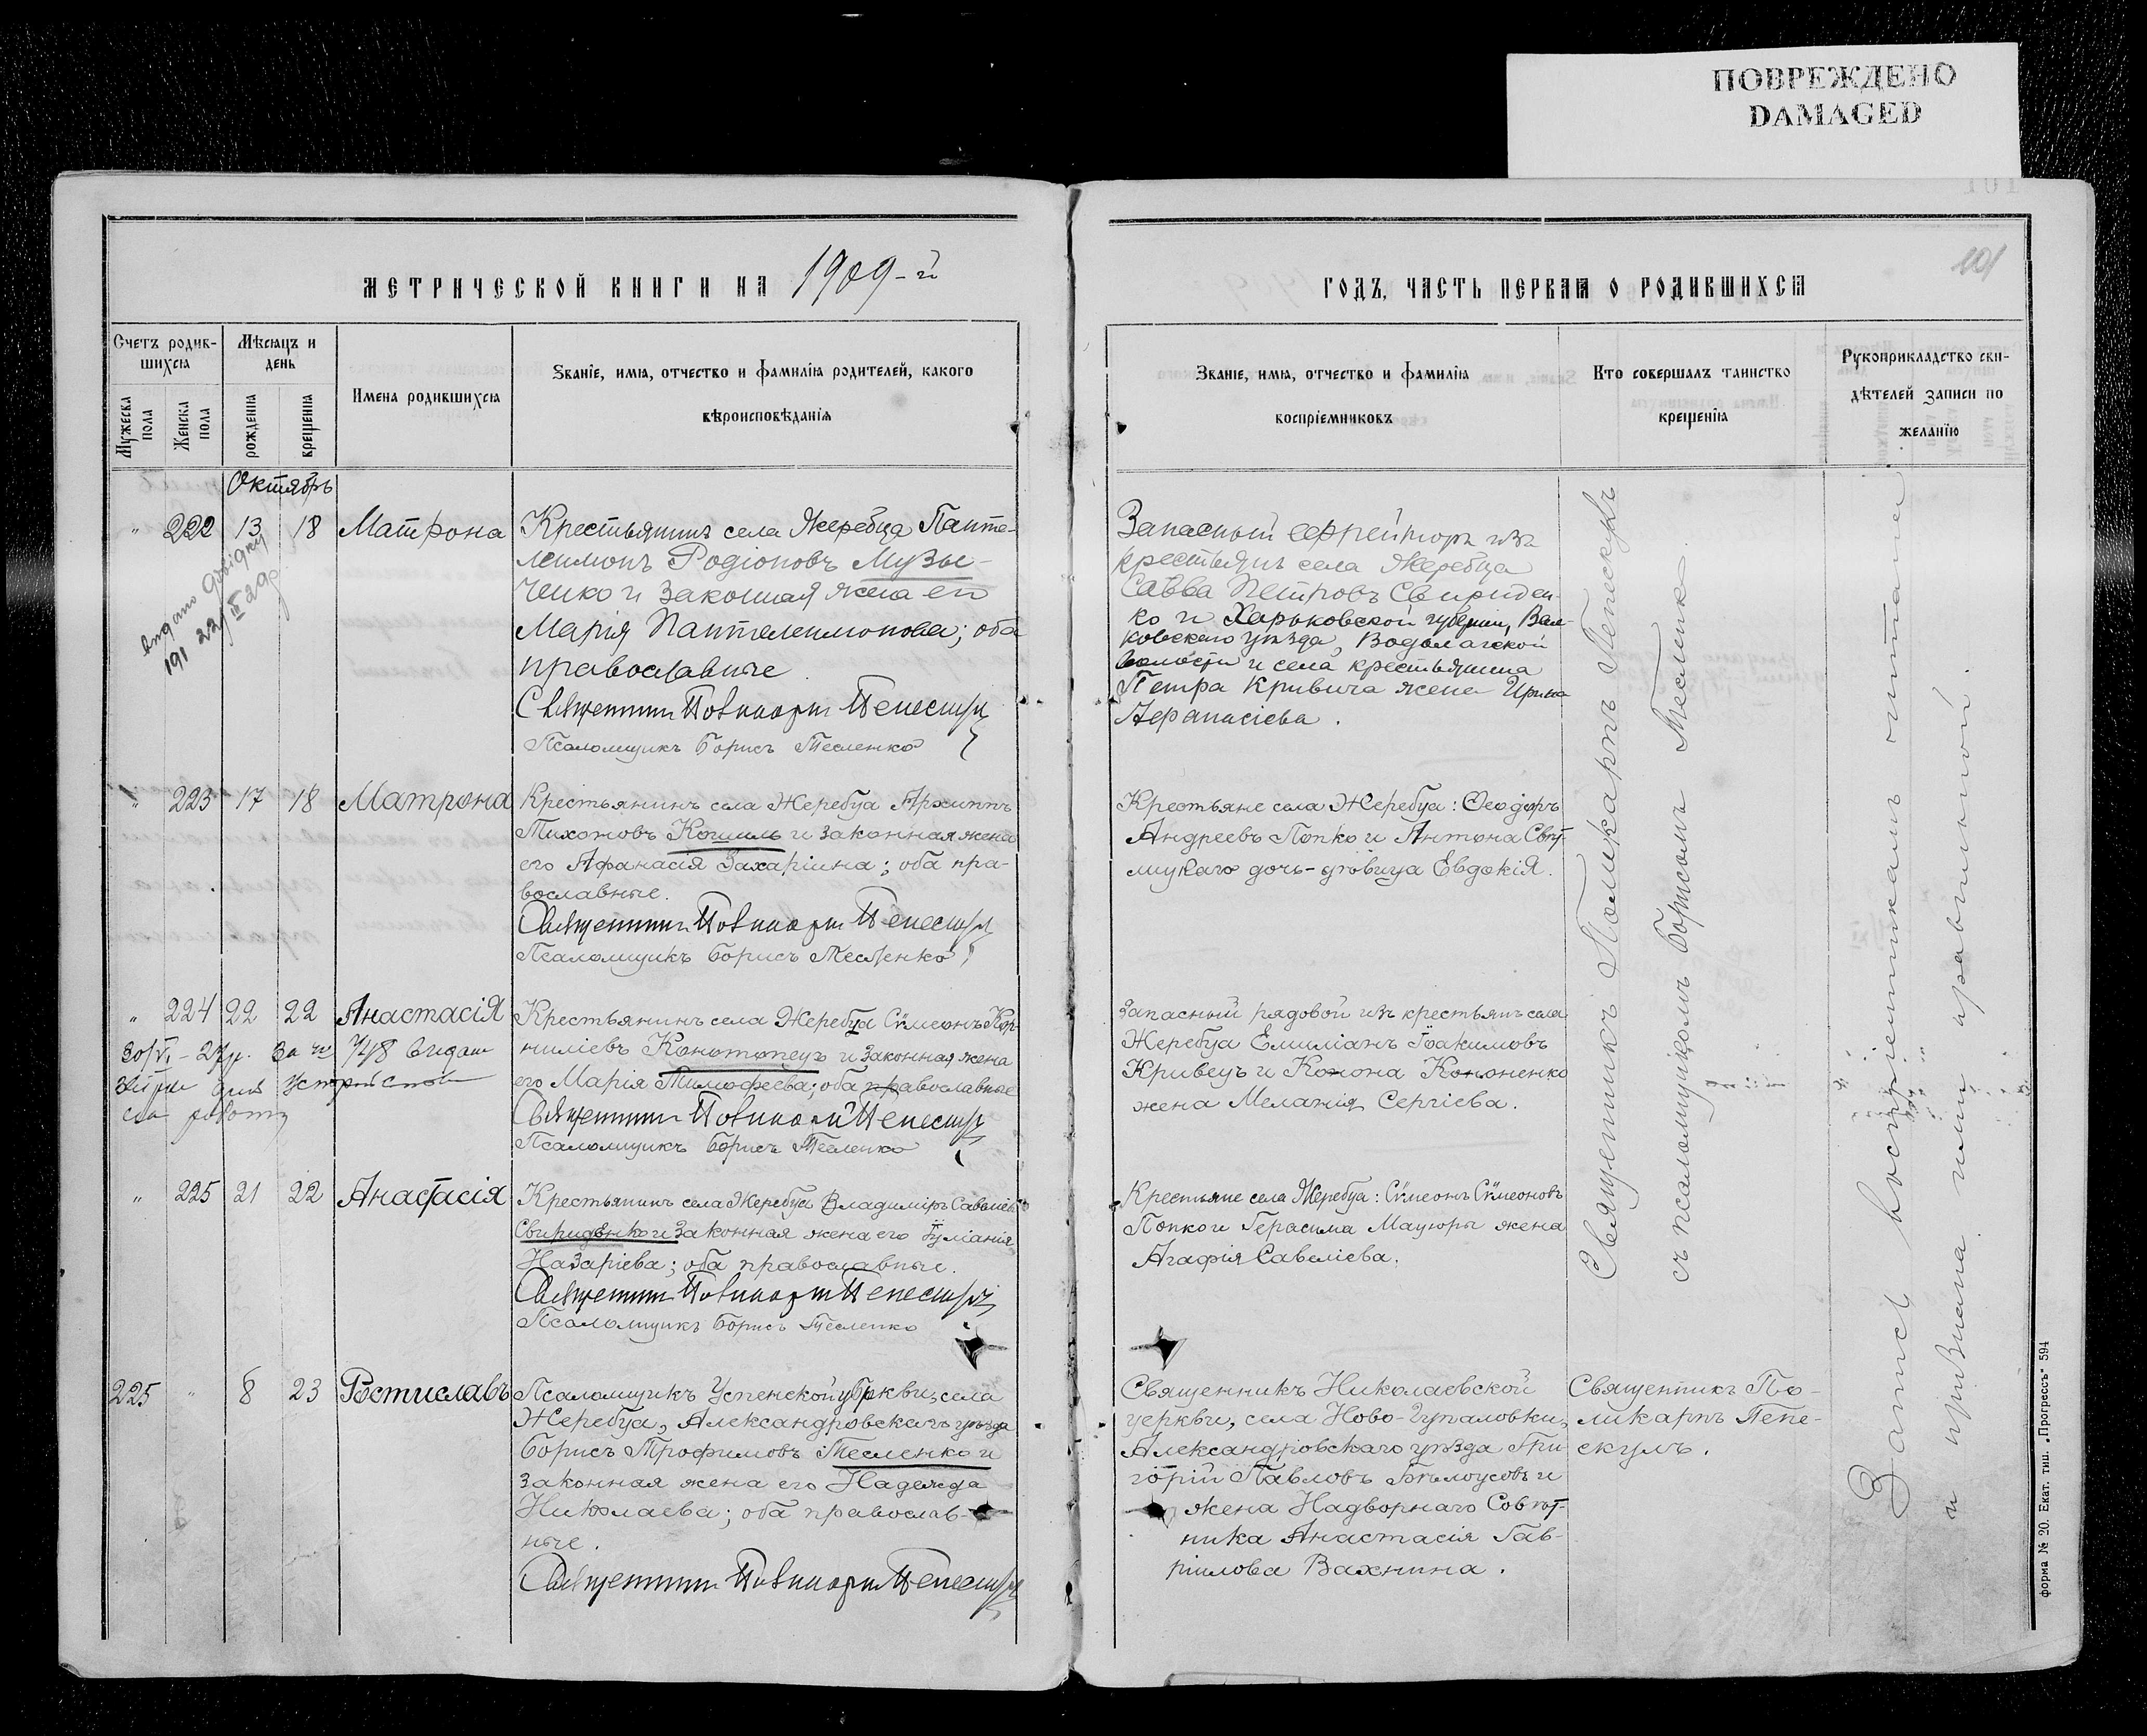 ПОВРЕЖДЕНО
DAMAGED
101
МЕТРИЧЕСКОЙ КНИГИ НА 1909-й
ГОДЪ, ЧАСТЬ ПЕРВАЯ О РОДИВШИХСЯ
Счетъ родив-
шихся
Мужеска пола
Женска пола
Мѣсяцъ и
день
рожденія
крещенія
Имена родившихся
Званіе, имя, отчество и фамилія родителей, какого
вѣроисповѣданія
Званіе, имя, отчество и фамилія
воспріемниковъ
Кто совершалъ таинство
крещенія
Рукоприкладство сви-
дѣтелей записи по
желанію
Октябрь
" 222 13 18 Матрона
Крестьянинъ села Жеребца Панте-
леимонъ Родіоновъ Музы-
ченко и законная жена его
Марія Пантелеимонова; оба
православные
Священникъ Поликарпъ Пепескулъ
Псаломщикъ Борисъ Тесленко
Запасный ефрейторъ изъ
крестьянъ села Жеребца
Савва Петровъ Свириден-
ко и Харьковской губерніи, Вал-
ковскаго уѣзда, Водолагской
волости и села крестьянина
Петра Кривича жена Ирина
Аѳанасіева.
" 223 17 18 Матрона
Крестьянинъ села Жеребца Архиппъ
Тихоновъ Когиль и законная жена
его Афанасія Захаріина; оба пра-
вославные.
Священникъ Поликарпъ Пепескулъ
Псаломщикъ Борисъ Тесленко
Крестьяне села Жеребца: Ѳеодоръ
Андреевъ Попко и Антона
дочь-дѣвица Евдокія.
" 224 22 22 Анастасія
30/VI - 27р. За № 748
роботу
Крестьянинъ села Жеребца Сѵмеонъ Кор-
ниліевъ Конотопецъ и законная жена
его Марія Тимофеева; оба православные
Священникъ Поликарпъ Пепескулъ
Псаломщикъ Борисъ Тесленко
Запасный рядовой изъ крестьянъ села
Жеребца Емиліанъ Іоакимовъ
Кривецъ и Конона Кононенко
жена Меланія Сергіева.
" 225 21 22 Анастасія
Крестьянинъ села Жеребца Владиміръ Савеліевъ
Свириденко и законная жена его Іуліанія
Назаріева; оба православные.
Священникъ Поликарпъ Пепескулъ
Псаломщикъ Борисъ Тесленко
Крестьяне села Жеребца: Сѵмеонъ Сѵмеоновъ
Попко и Герасима Мацюры жена
Агафія Савеліева.
225 " 8 23 Ростиславъ
Псаломщикъ Успенской церкви, села
Жеребца, Александровскаго уѣзда
Борисъ Трофимовъ Тесленко и
законная жена его Надежда
Николаева; оба православ-
ные.
Священникъ Поликарпъ Пепескулъ
Священникъ Николаевской
церкви, села Ново-Гупаловки,
Александровскаго уѣзда Гри-
горій Павловъ Бѣлоусовъ и
жена Надворнаго Совѣт-
ника Анастасія Гав-
ріилова Вахнина.
Священникъ По-
ликарпъ Пепе-
скулъ.
Священникъ Поликарпъ Пепескулъ
съ псаломщикомъ Борисомъ Тесленко.
Запись воспріемникамъ читана
и признана ими правильной.
форма № 20. Екат. тип. „Прогрессъ" 594